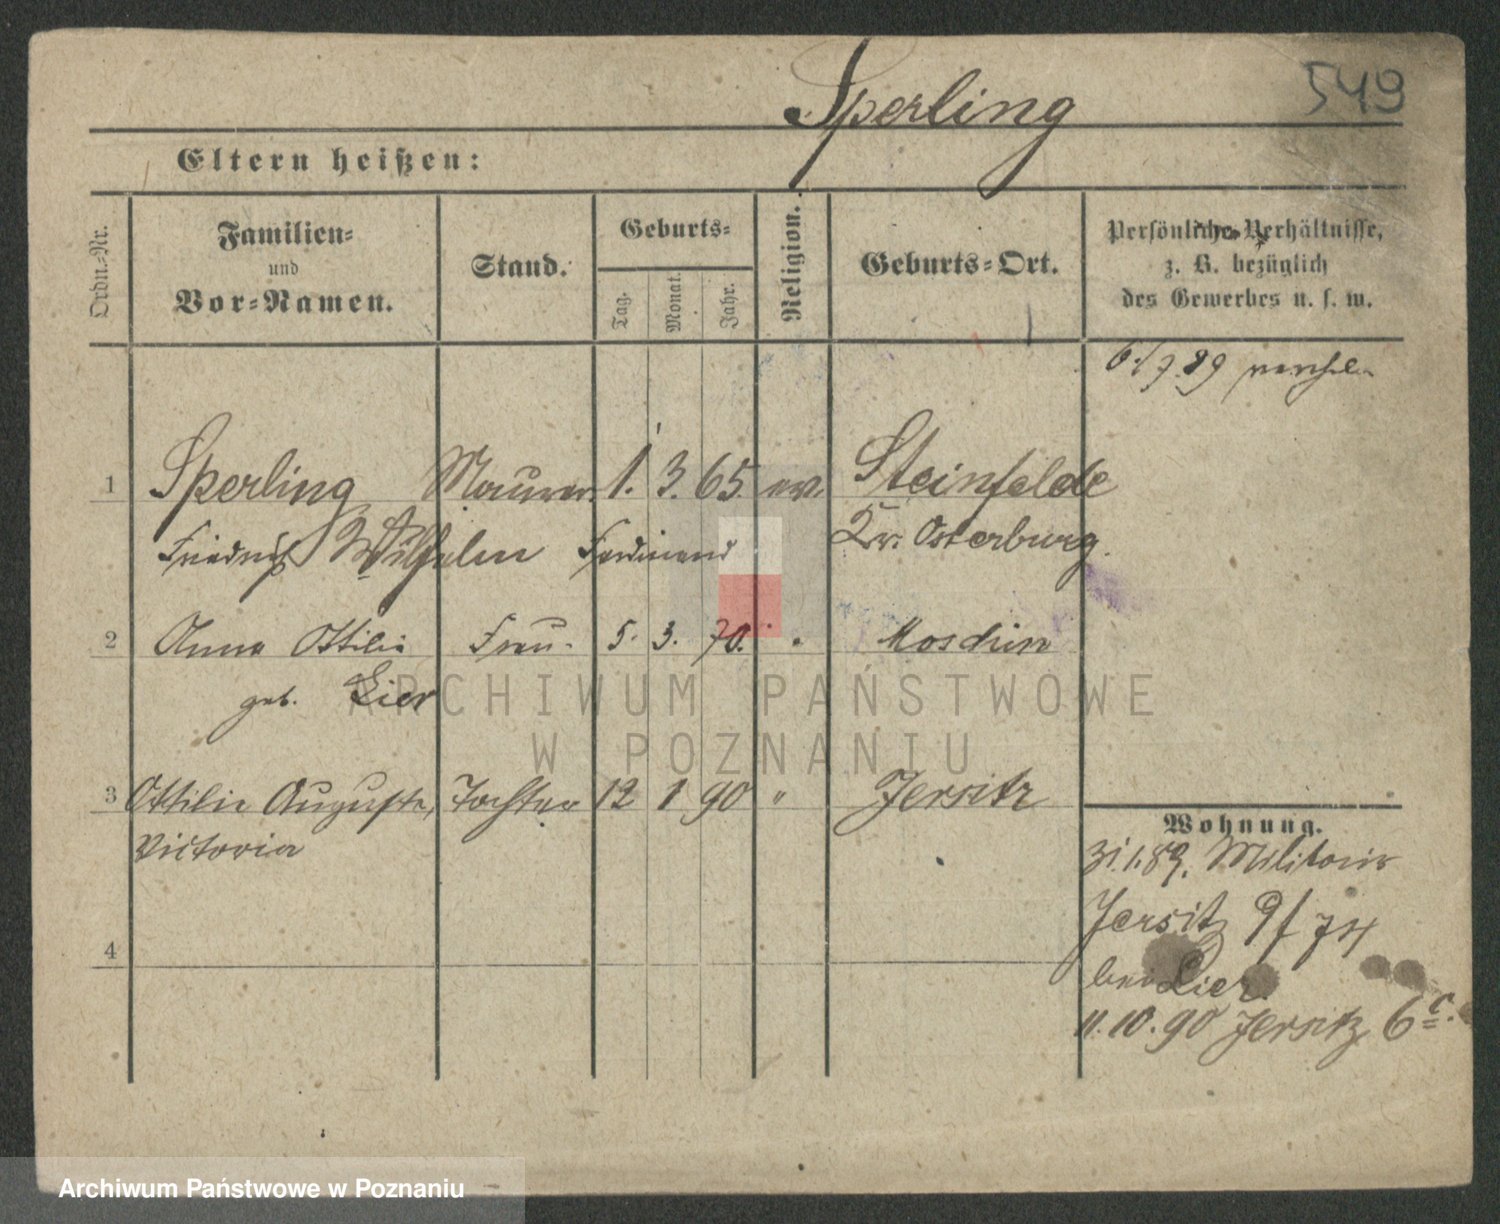 Sperling 549
Eltern heißen:
Ordn.-Nr. Familien- und Vor-Namen. Stand. Geburts- Tag. Monat. Jahr. Religion. Geburts-Ort. Persönliche Verhältnisse, z. B. bezüglich des Gewerbes u. s. w.
6./7.89
1 Sperling Maurer. 1. 3. 65. ev. Steinfelde
Friedrich Wilhelm Ferdinand Kr. Osterburg.
2 Anna Ottilie Frau. 5. 3. 70. " Moschin
geb. Lier
ARCHIWUM PAŃSTWOWE
W POZNANIU
3 Ottilie Auguste, Tochter 12 1 90 " Jersitz
Victoria
Wohnung.
31.1.89. Militair
Jersitz 9/74
bei Lier.
4
11.10.90 Jersitz 6c.
Archiwum Państwowe w Poznaniu